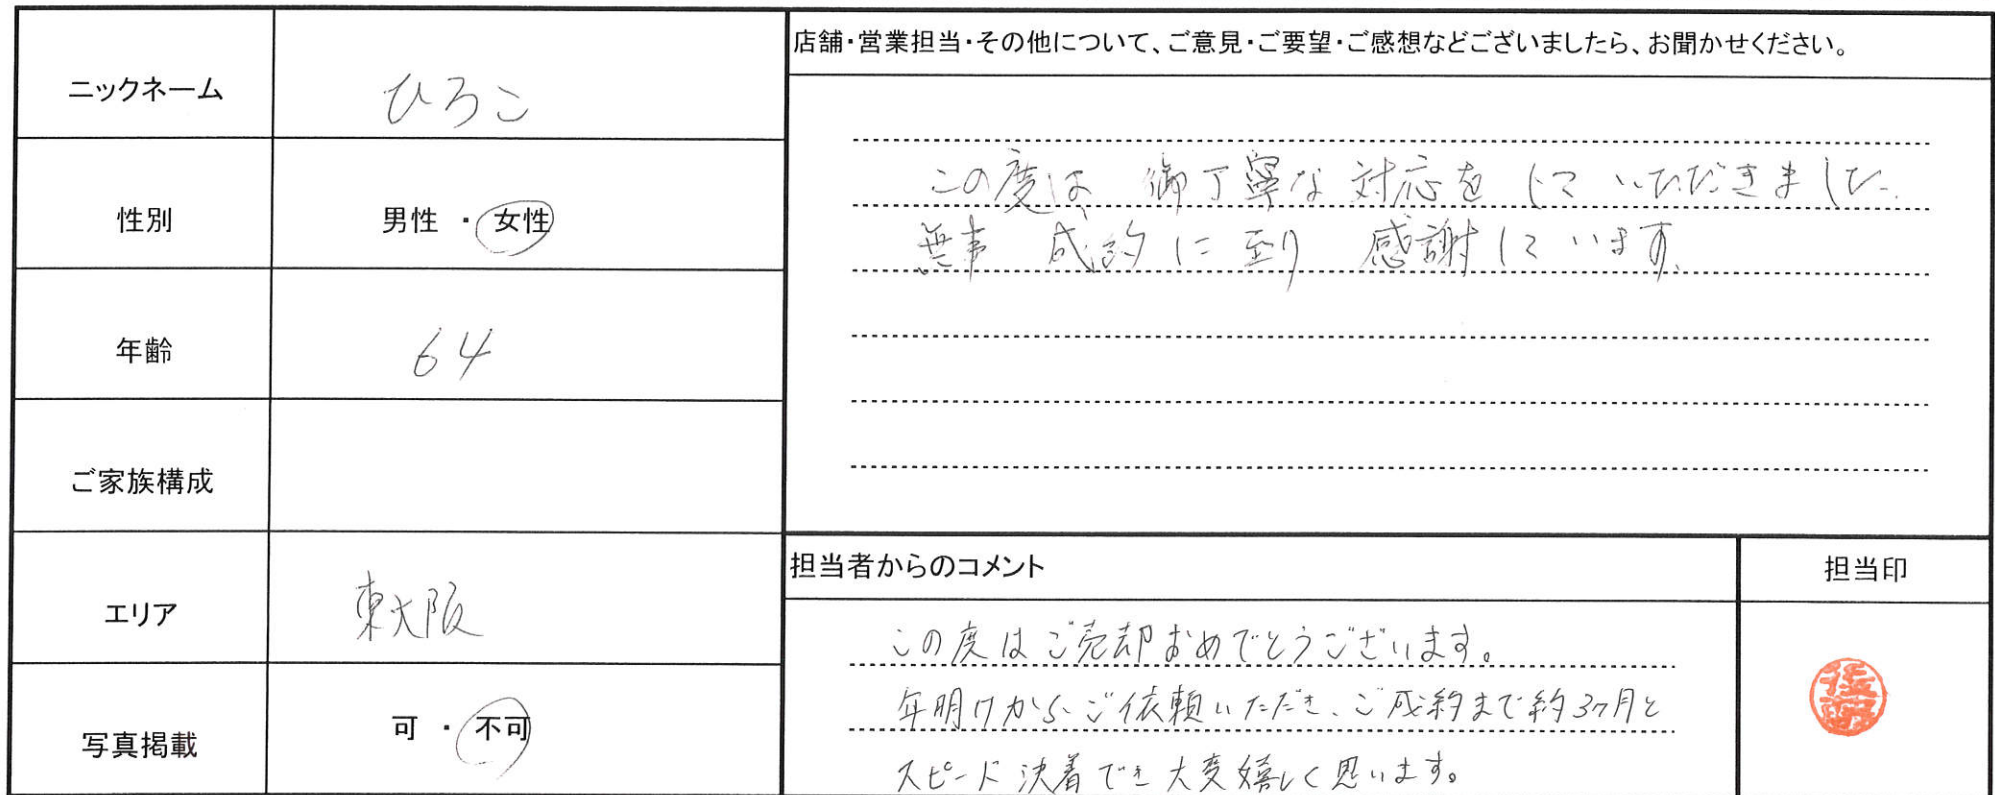 ニックネーム ひろこ
性別 男性 ・ 女性
年齢 64
ご家族構成
エリア 東大阪
写真掲載 可 ・ 不可
店舗・営業担当・その他について、ご意見・ご要望・ご感想などございましたら、お聞かせください。
この度は、御丁寧な対応をしていただきました。
無事 成約に至り 感謝しています。
担当者からのコメント
この度はご売却おめでとうございます。
年明けからご依頼いただき、ご成約まで約3ヶ月と
スピード決着でき大変嬉しく思います。
担当印